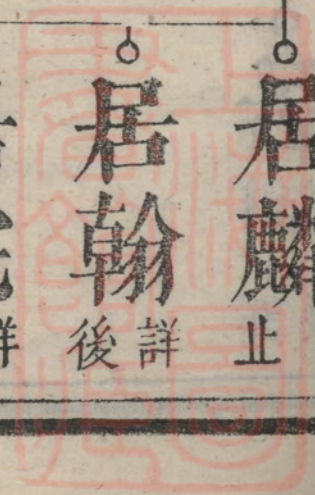 居麟止
居翰詳後
詳